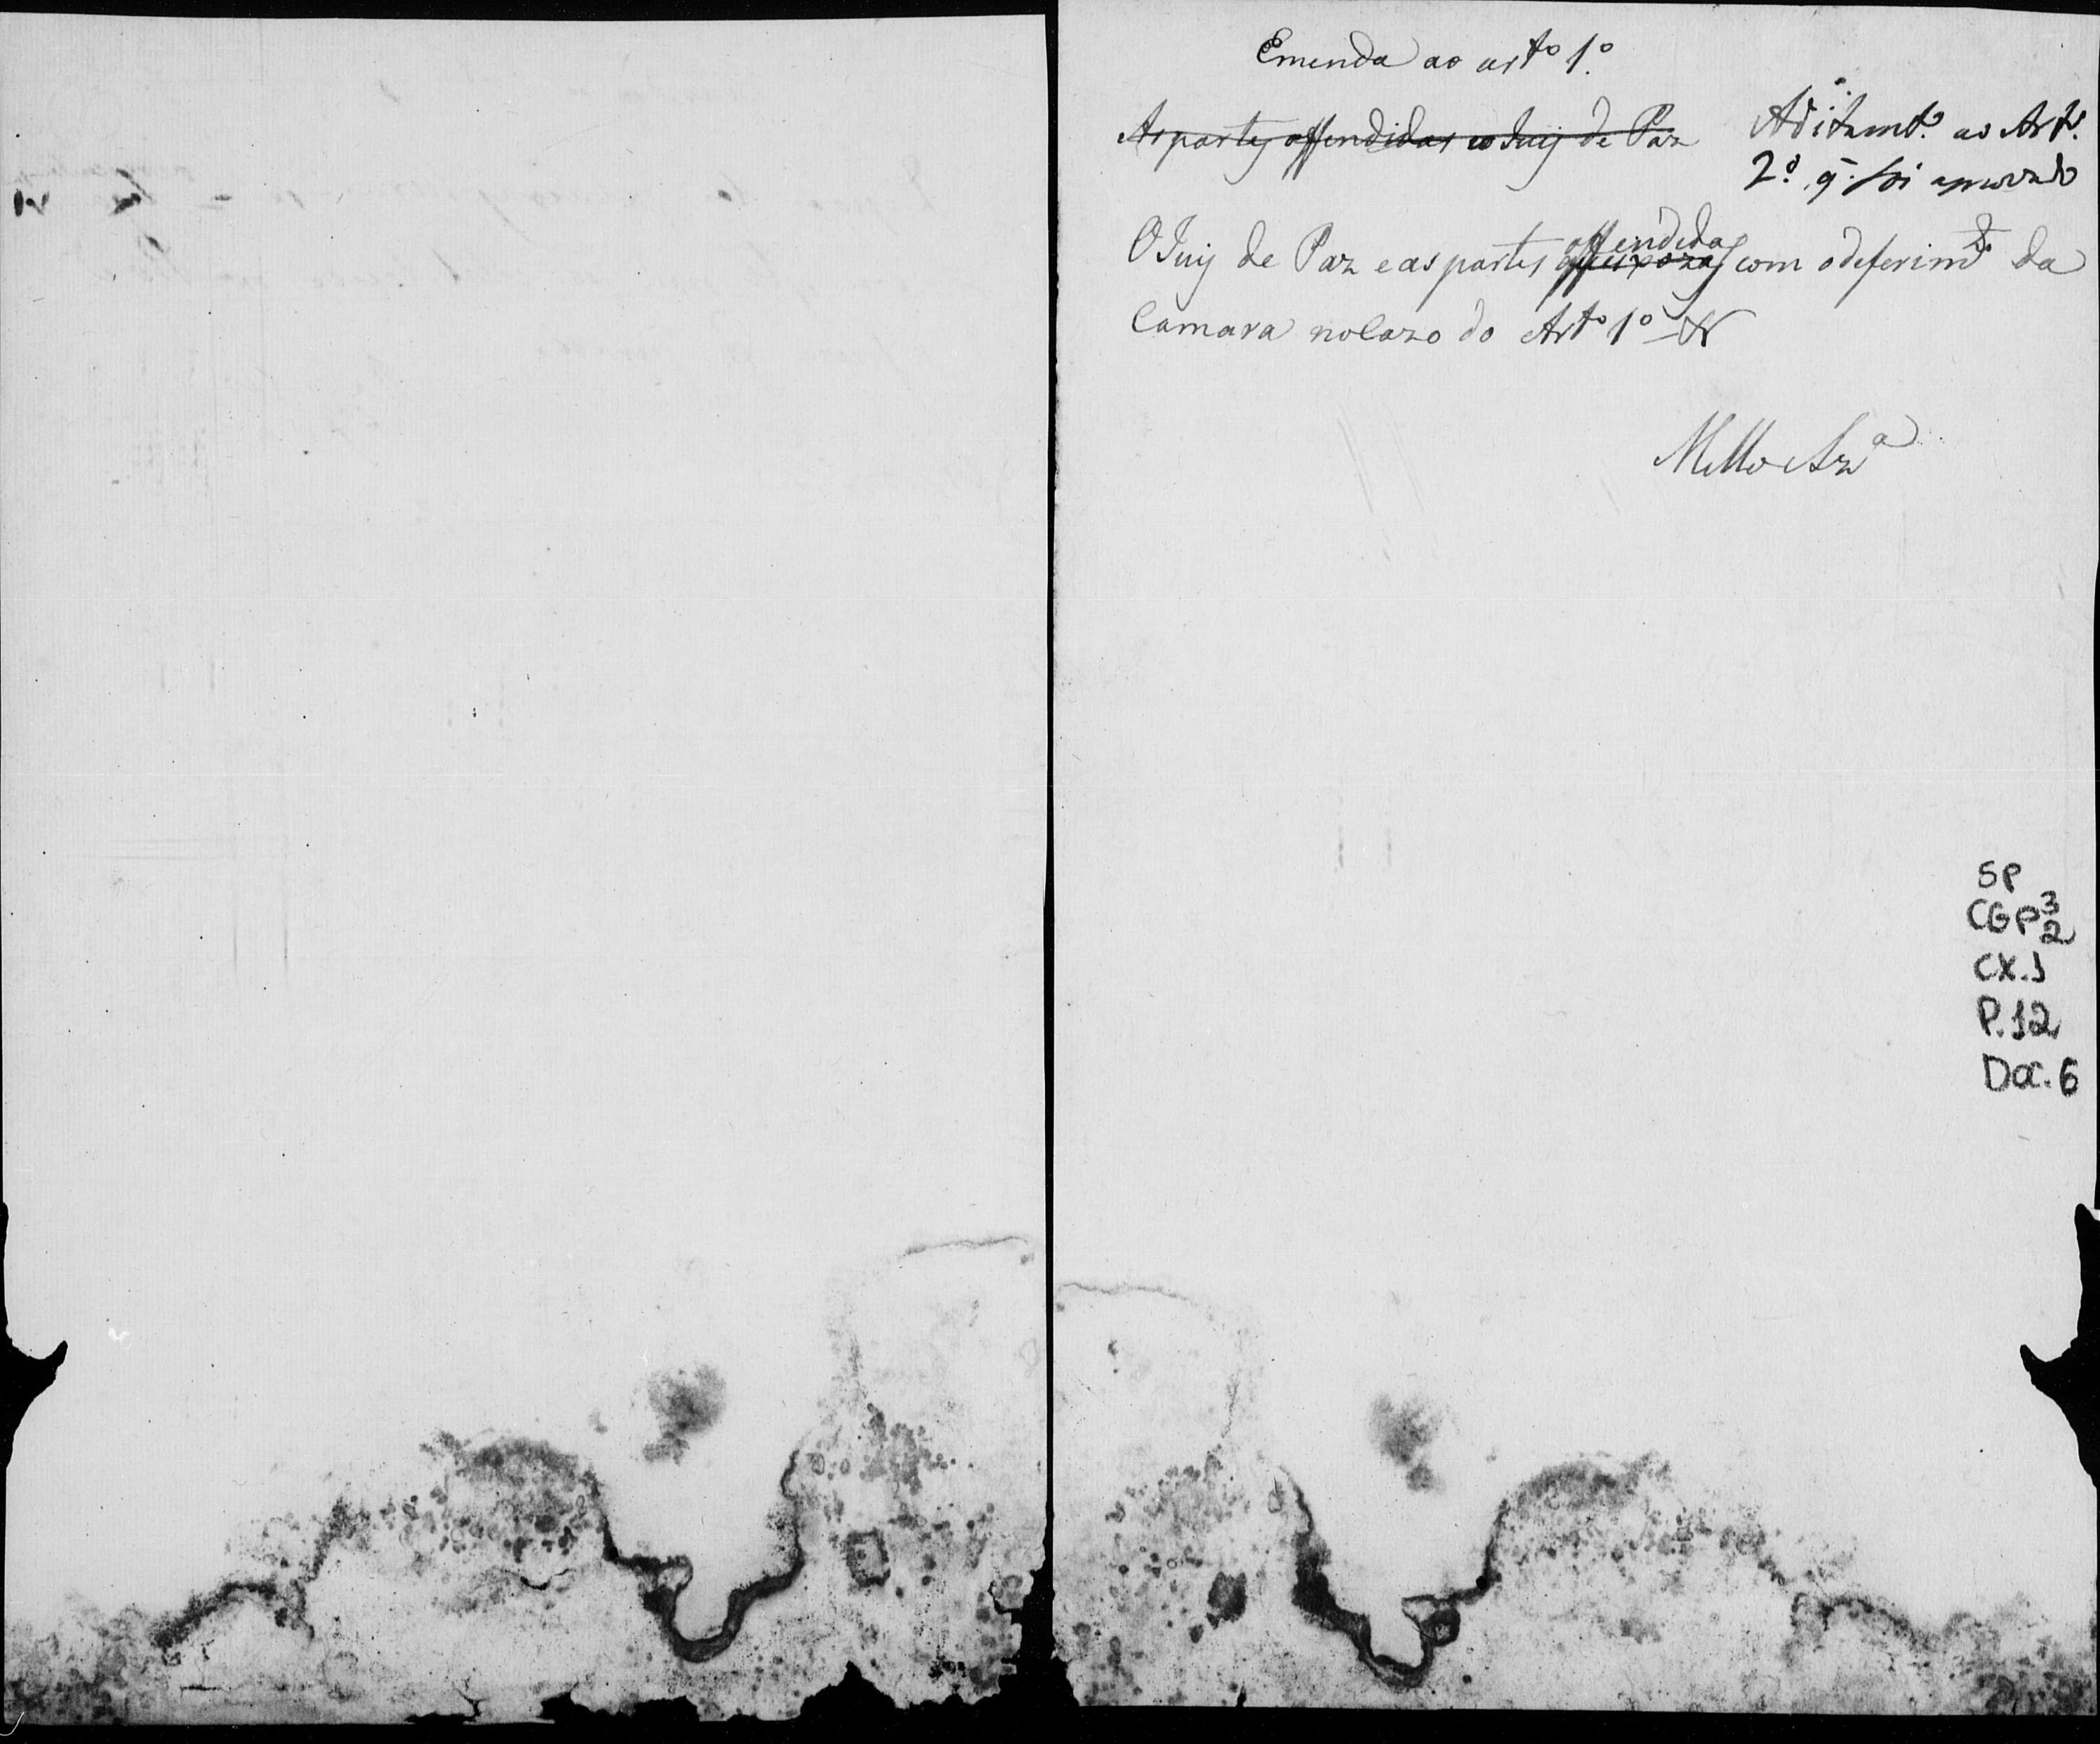 Emenda ao arto 1.o
As partes offendidas e o Juiz de Paz
Aditamto. ao Arto.
2.o q̄. foi aprovado
O Juiz de Paz e as partes offendidas com o deferimto. da
Camara no Cazo do Arto 1o
Mello e Sza
SP
CGP3
2
CX.1
P.12
Doc.6